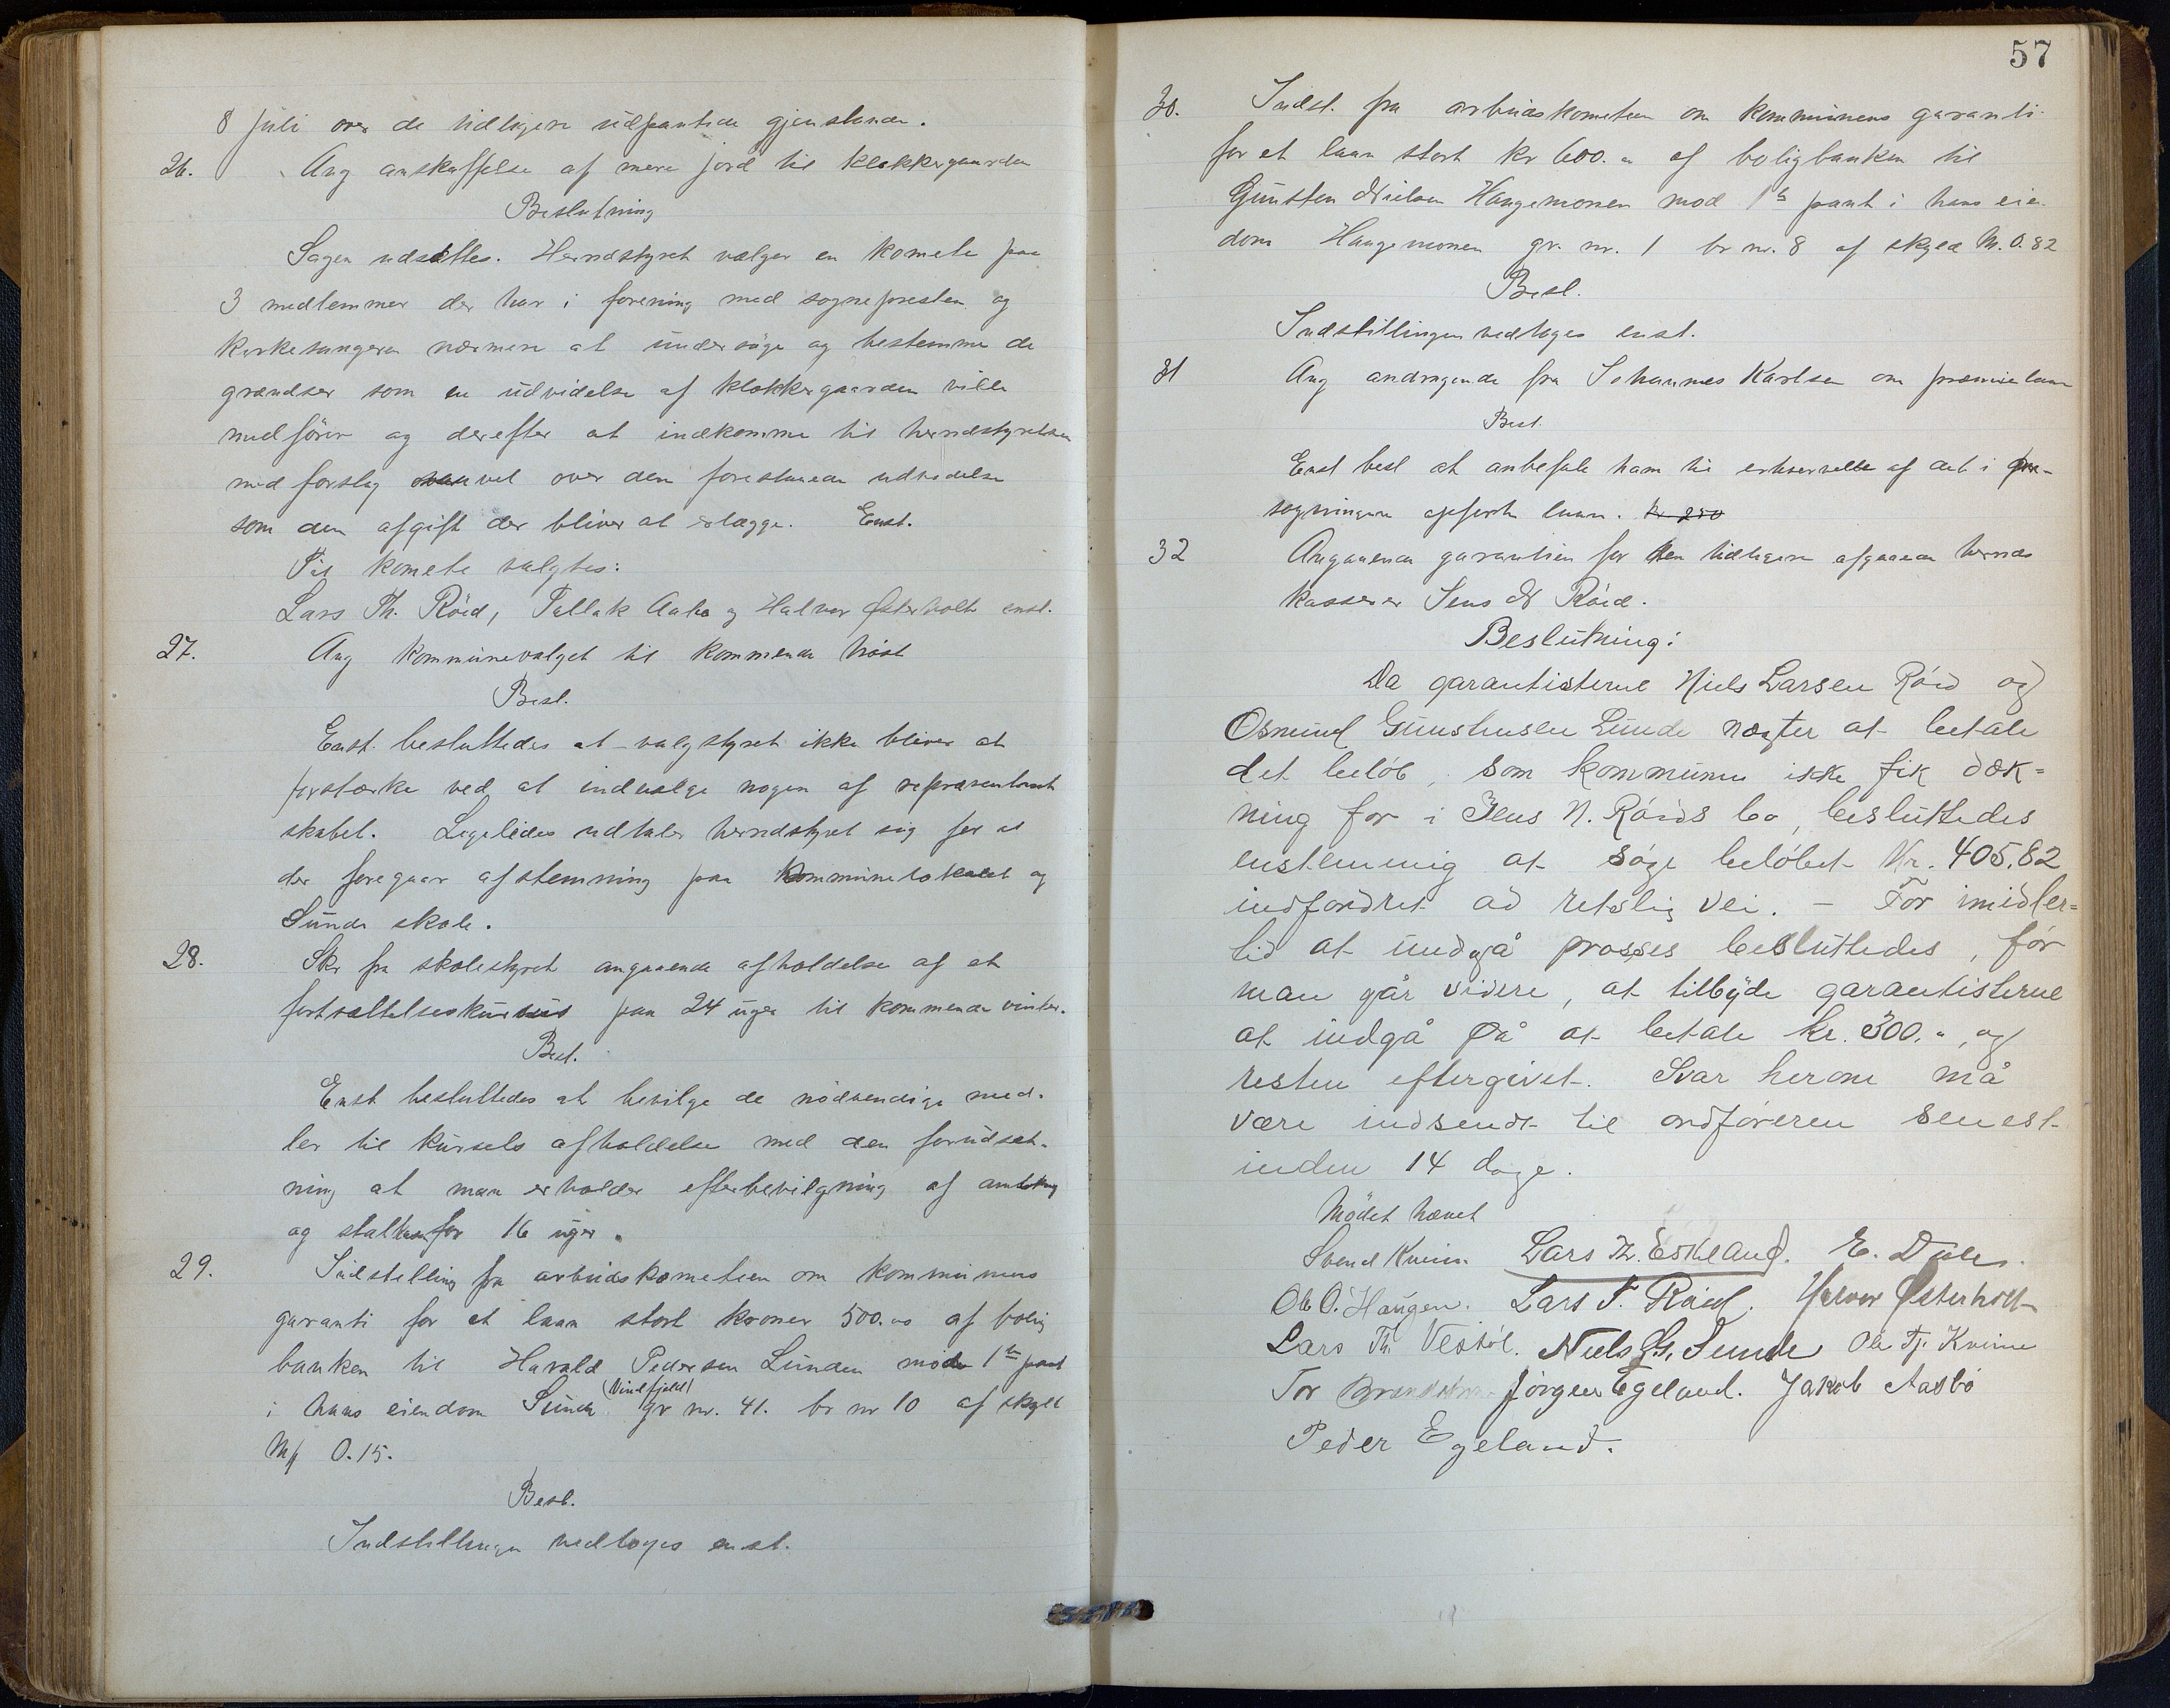 8 juli over de tidligere udpantede gjenstande.
26. Ang anskaffelse af mere jord til klokkergaarden
Beslutning
Sagen udsættes. Herredstyret vælger en komete paa
3 medlemmer der har i forening med sognepresten og
kirkesangeren nærmere at undersöge og bestemme de
grændser som en udvidelse af klokkergaarden ville
medföre og derefter at indkomme til herredstyrelsen
med forslag saavel over den forestaaende udvidelse
som den afgift der bliver at erlægge. Enst.
Til komete valgtes:
Lars Th. Röid, Tallak Aabø og Halvor Østerholt enst.
27. Ang kommunevalget til kommende höst
Besl.
Enst. besluttedes at valgstyret ikke bliver at
forstærke ved at indvælge nogen af repræsentant
skabet. Ligeledes udtaler herredstyret sig for at
der foregaar afstemning paa kommunelokalet og
Sunde skole.
28. Skr fra skolestyret angaaende afholdelse af et
fortsættelseskursus paa 24 uger til kommende vinter.
Besl.
Enst besluttedes at bevilge de nödvendige mid-
ler til kursets afholdelse med den forudsæt-
ning at man erholder efterbevilgning af amtskas
og statskas for 16 uger.
29. Indstilling fra arbeidskometeen om kommunens
garanti for et laan stort kroner 500.00 af bolig
banken til Harald Pedersen Lunden mod 1ste pant
(Vindfjeld)
i hans eiendom Sunde gr nr. 41. br nr 10 af skyld
Mk 0.15.
Besl.
Indstillingen vedtoges enst.
57
30. Indst. fra arbeidskometeen om kommunens garanti
for et laan stort kr 600.00 af boligbanken til
Gunsten Nielsen Haugemonen mod 1ste pant i hans eien
dom Haugemonen gr. nr. 1 br nr. 8 af skyld M. 0.82
Besl.
Indstillingen vedtoges enst.
31 Ang andragende fra Johannes Karlsen om præmielaan
Besl.
Enst besl at anbefale ham til erhvervelse af det i an-
sögningen opførte laan. kr 250
32 Angaaende garantien for den tidligere afgaaede herreds
kasserer Jens N Röid.
Beslutning:
Da garantisterne Niels Larsen Röid og
Osmund Gunstensen Lunde nægter at betale
det belöb, som kommunen ikke fik dæk=
ning for i Jens N. Röids bo, besluttedes
enstemmig at söge belöbet Kr. 405.82
indfordret ad retslig vei. – For imidler=
tid at undgå prosses besluttedes, för
man går videre, at tilbyde garantisterne
at indgå på at betale kr. 300.", og
resten eftergivet. Svar herom må
være indsendt til ordföreren senest
inden 14 dage.
Mödet hævet
Svend Kveim Lars Th. Eskeland. E. Dale.
Ole O. Haugen. Lars T. Röid. Halvor Østerholt
Lars Th Vestöl. Niels G. Sunde Ole Tj. Kveim
Tor Jörgen Egeland. Jakob Aasbö
Peder Egeland.